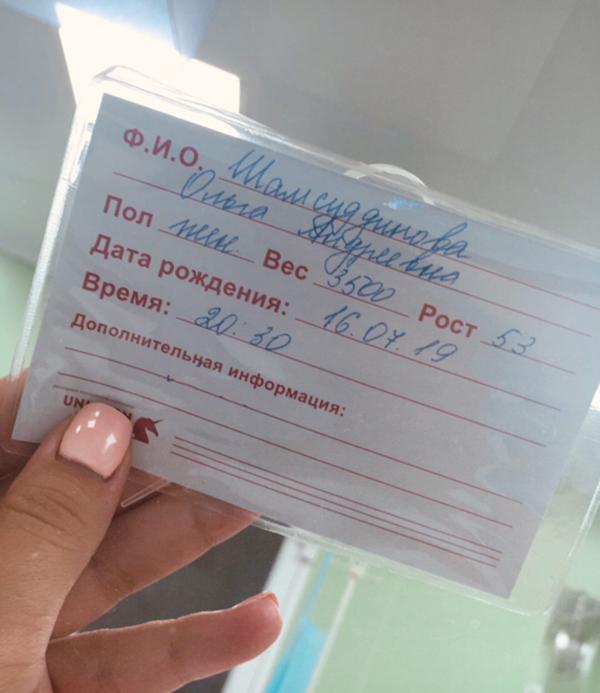 Ф.И.О. Шамсуддинова
Ольга Андреевна
Пол жен. Вес 3500 Рост 53
Дата рождения: 16.07.19
Время: 20:30
Дополнительная информация: